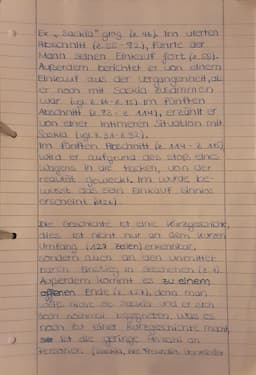 Ex "Saskia" ging. (z. 46). Im vierten
Abschnitt (z. 55 - 82), führte der
Mann seinen Einkauf fort (z. 55).
Außerdem berichtet er von einem
Einkauf aus der Vergangenheit, als
er noch mit Saskia zusammen
war (vgl. z. 71 - z. 75). Im fünften
Abschnitt (z. 83 - z. 114), erzählt er
von einer intimeren Situation mit
Saskia (vgl. z. 31 - z. 92).
Im fünften Abschnitt (z. 114 - z. 115)
wird er aufgrund des Stoß eines
Wagens in die Hacken, von der
realität geweckt. Ihm wurde be-
wusst das sein Einkauf sinnlos
erscheint (z. 126).
Die Geschichte ist eine Kurzgeschichte,
dies ist nicht nur an dem kurzen
Umfang (127 Zeilen) erkennbar,
sondern auch an den unmittel-
baren Einstieg in Geschehen (z. 1).
Außerdem kommt es zu einem
offenen Ende (z. 127), denn man
weiß nicht ob Saskia und er sich
noch nochmal begegneten, was es
noch zu einer Kurzgeschichte macht,
ist die geringe Anzahl an
Personen. (Saskia, ihre Freundin,